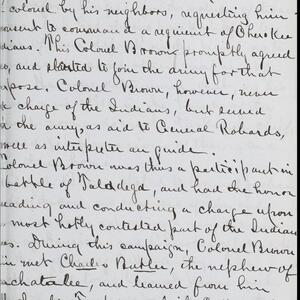 colonel by his neighbors, requesting him
consent to command a regiment of Cherokee
dians. This Colonel Brown promptly agreed
and started to join the army for that
pose. Colonel Brown, however, never
charge of the Indians, but served
the army as aid to General Robards,
well as interpreter an guide.
Colonel Brown was thus a participant in
battle of Taladega, and had the honor
eading and conducting a charge upon
most hotly contested part of the Indian
es. During this campaign, Colonel Brown
in met Charles Butler, the nephew of
achatalee, and learned from him